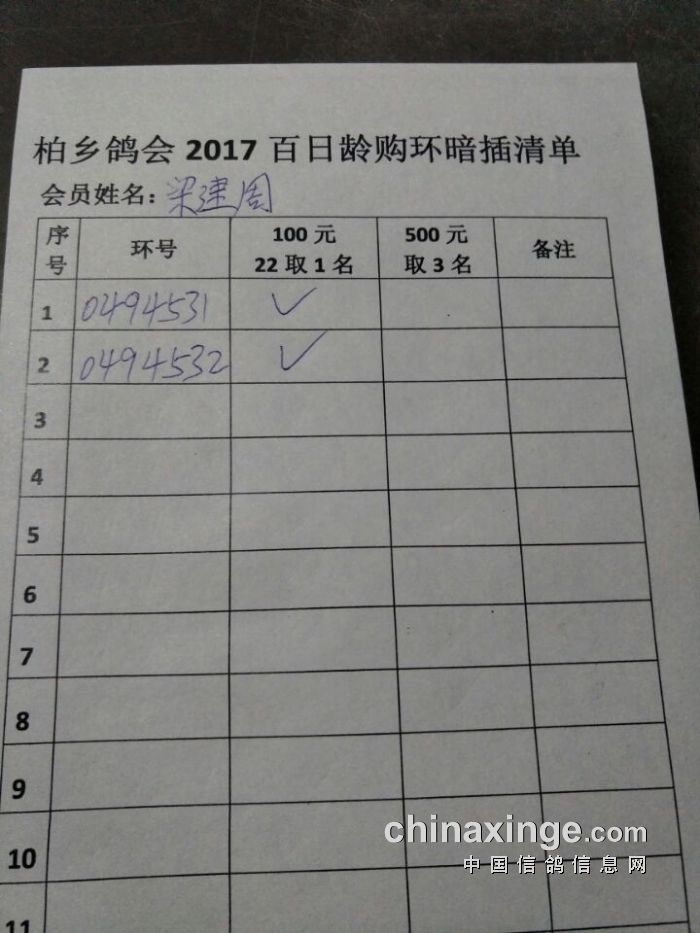 柏乡鸽会 2017 百日龄购环暗插清单
会员姓名：梁建周
序号 环号 100 元 22 取 1 名 500 元 取 3 名 备注
1 0494531 ✓
2 0494532 ✓
3
4
5
6
7
8
9
10
11
chinaxinge.com
中国信鸽信息网